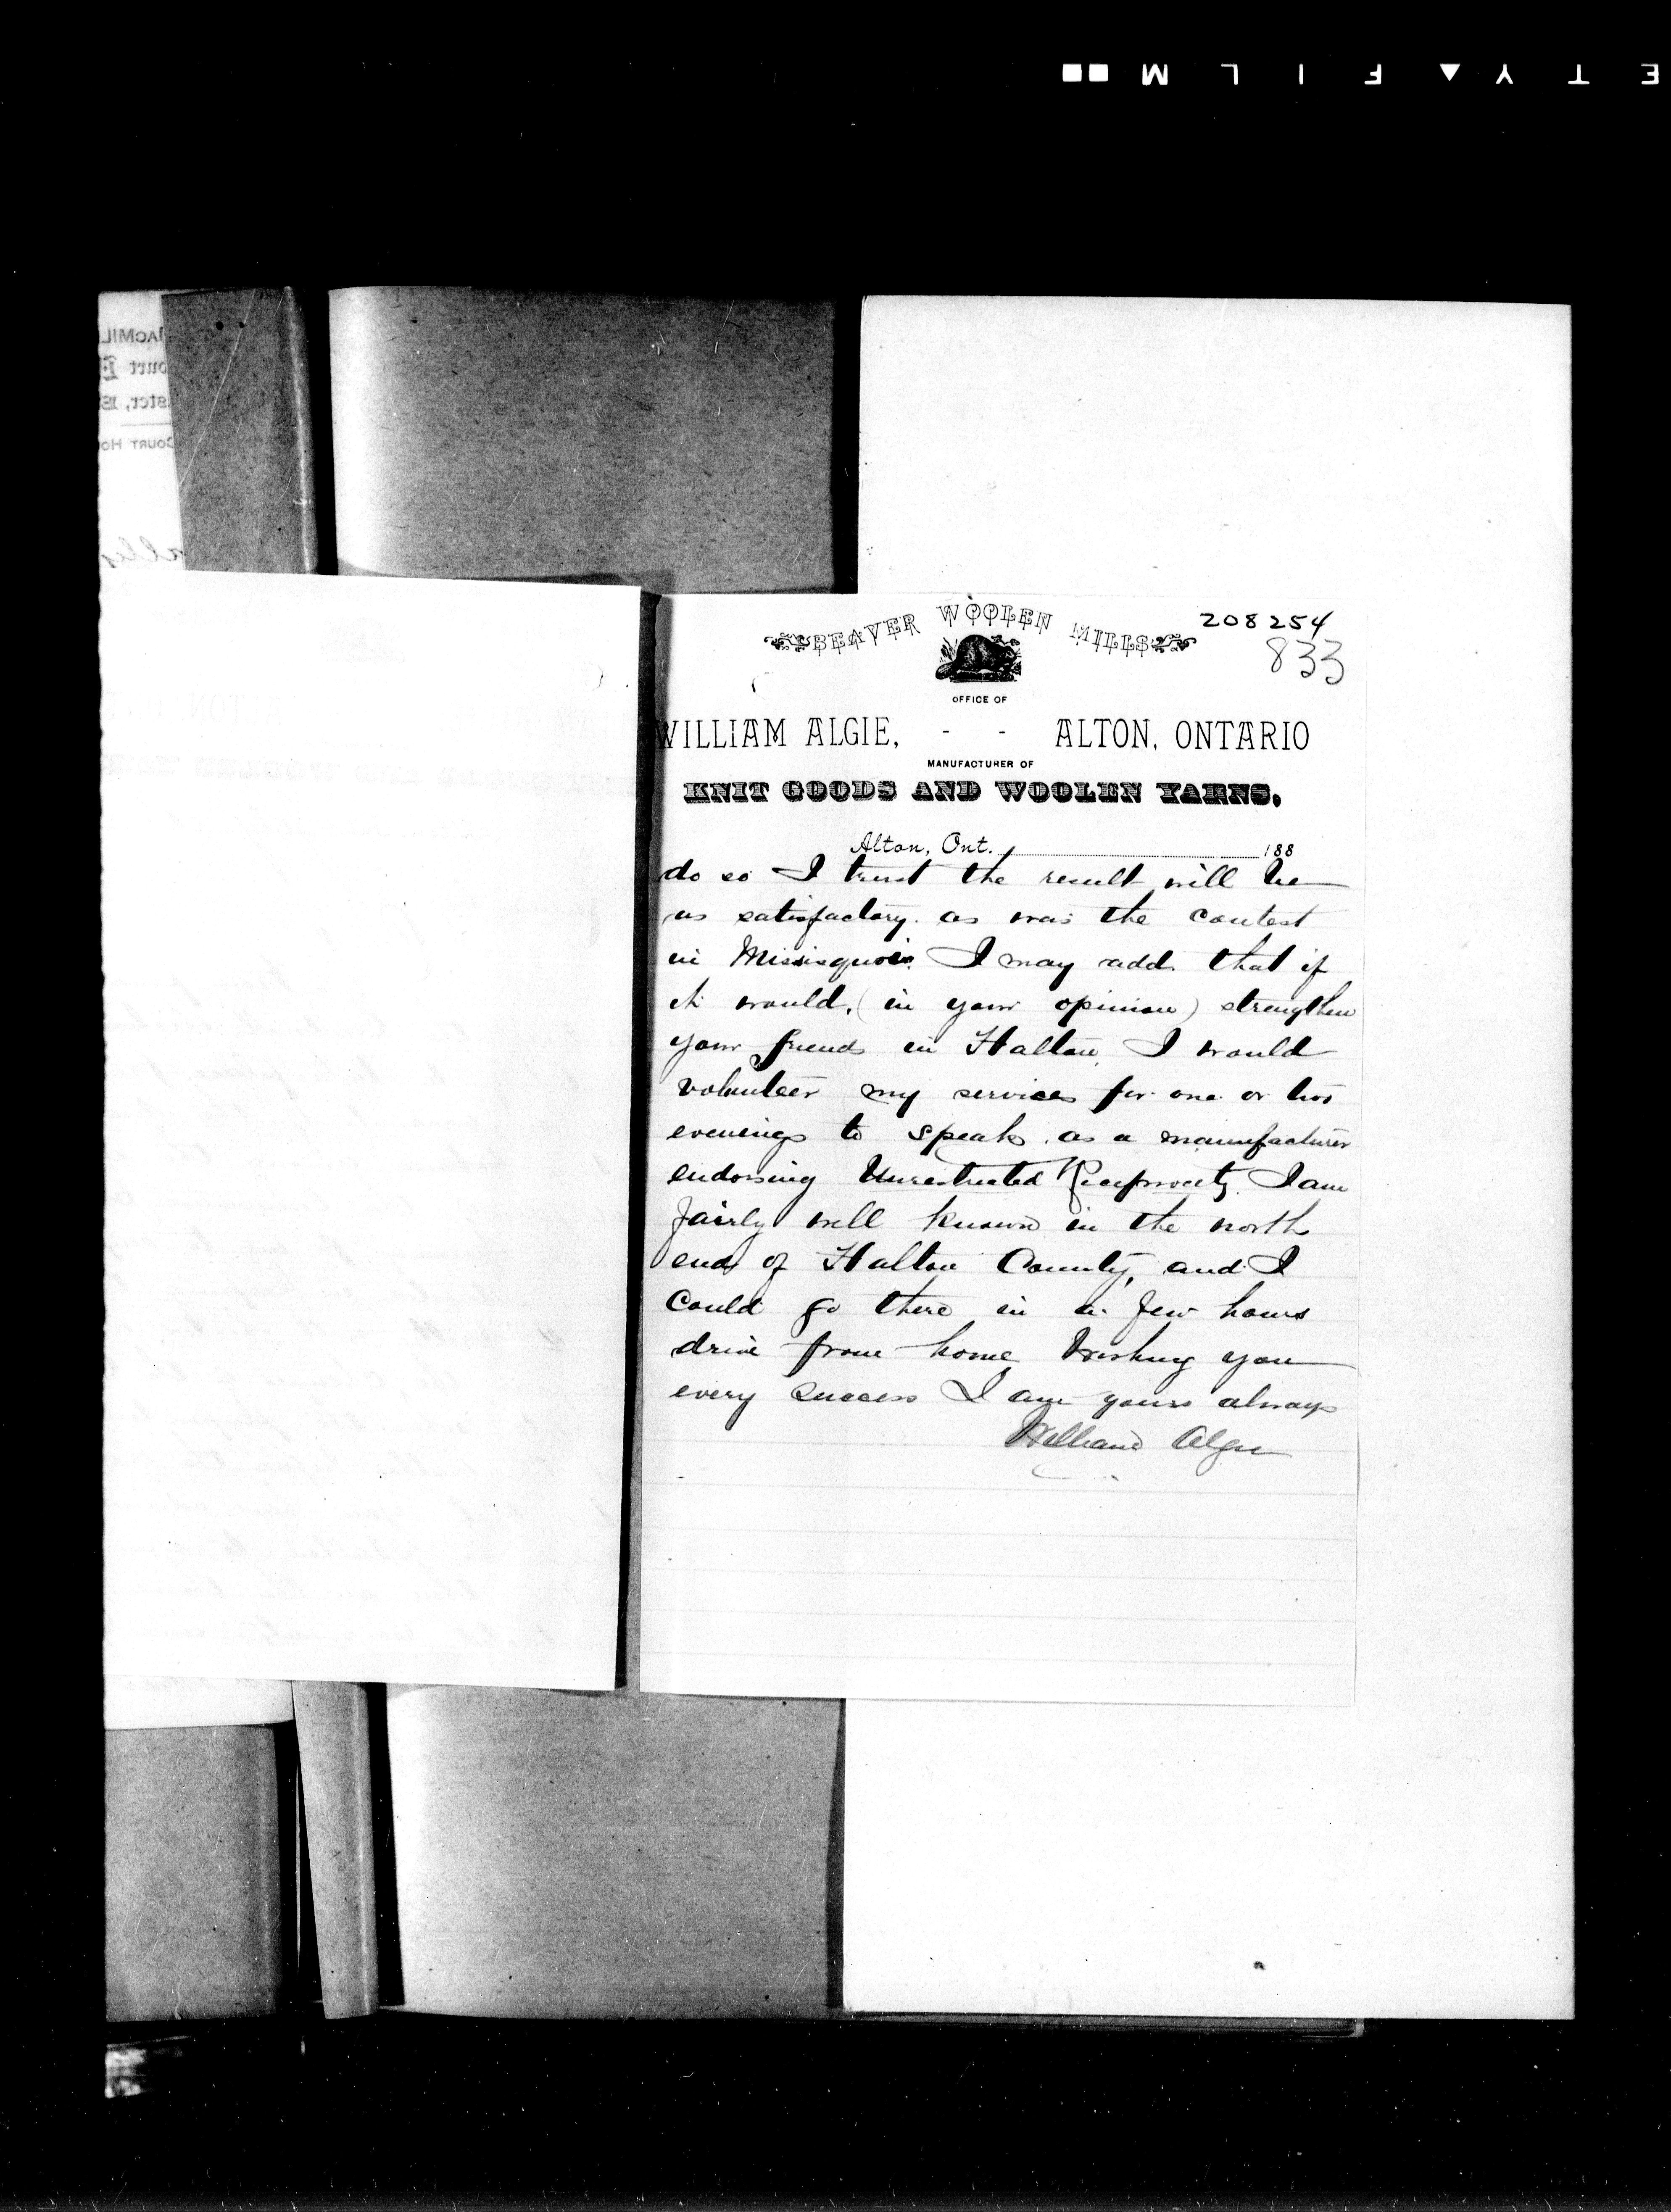 BEAVER WOOLEN MILLS
208254
833
OFFICE OF
WILLIAM ALGIE, - - ALTON, ONTARIO
MANUFACTURER OF
KNIT GOODS AND WOOLEN YARNS.
Alton, Ont. 188
do so I trust the result will be
as satisfactory. as was the contest
in Missisquoi. I may add that if
it would, (in your opinion) strengthen
your friends in Halton, I would
volunteer my services for one or two
evenings to speak as a manufacturer
endorsing Unrestricted Reciprocity. I am
fairly well known in the north
end of Halton County, and I
could go there in a few hours
drive from home Wishing you
every success I am yours always
William Algie